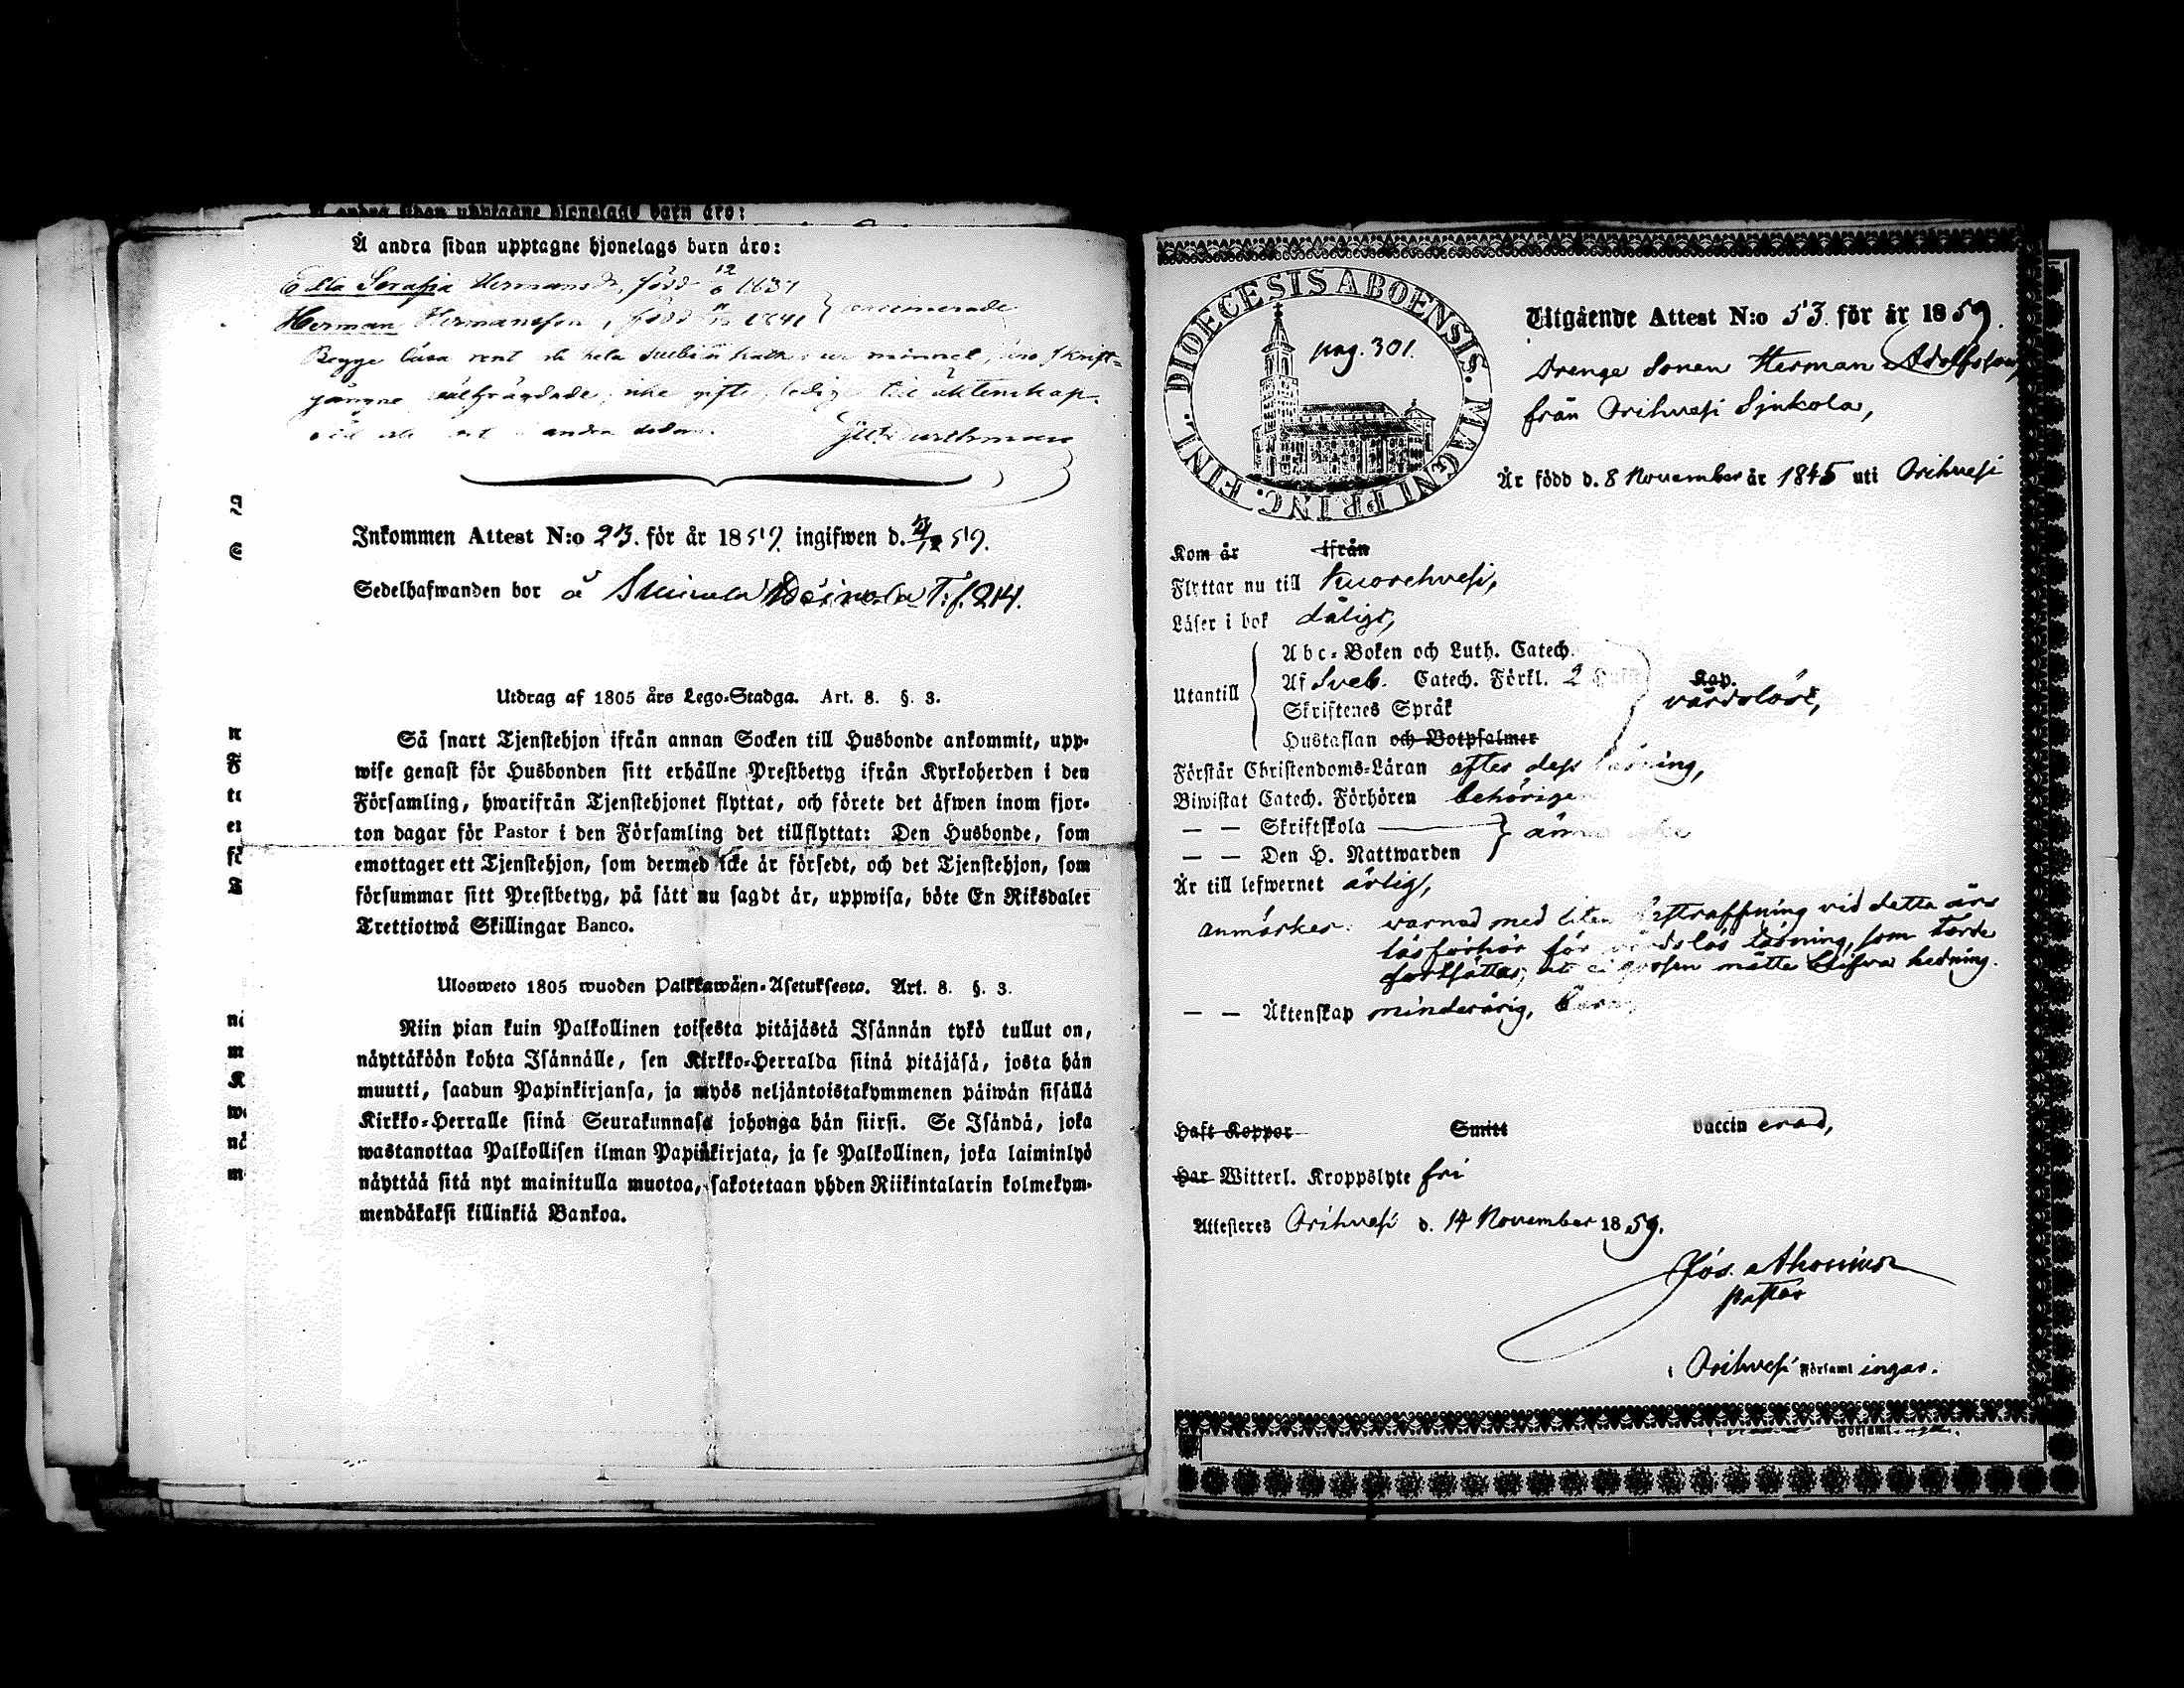 Å andra sidan upptagne hjonelags barn äro:
Edla Serafia Hermansdr, född 12/6 1837
Herman Hermansson, född 1841
Begge läsa rent
gångne, välfrägdade, icke gifte, ledige till äktenskap
andra sidan.
Inkommen Attest N:o 23. för år 1859. ingifwen d. 59.
Sedelhafwanden bor å
214.
Utdrag af 1805 års Lego-Stadga. Art. 8. §. 3.
Så snart Tjenstehjon ifrån annan Socken till Husbonde ankommit, upp-
wise genast för Husbonden sitt erhållne Prestbetyg ifrån Kyrkoherden i den
Församling, hwarifrån Tjenstehjonet flyttat, och förete det äfwen inom fjor-
ton dagar för Pastor i den Församling det tillflyttat: Den Husbonde, som
emottager ett Tjenstehjon, som dermed icke är försedt, och det Tjenstehjon, som
försummar sitt Prestbetyg, på sätt nu sagdt är, uppwisa, böte En Riksdaler
Trettiotwå Skillingar Banco.
Ulosweto 1805 wuoden Palkkawäen-Asetuksesta. Art. 8. §. 3.
Niin pian kuin Palkollinen toisesta pitäjästä Isännän tykö tullut on,
näyttäköön kohta Isännälle, sen Kirkko-Herralda siinä pitäjäsä, josta hän
muutti, saadun Papinkirjansa, ja myös neljäntoistakymmenen päiwän sisällä
Kirkko-Herralle siinä Seurakunnasa johonga hän siirsi. Se Isändä, joka
wastanottaa Palkollisen ilman Papinkirjata, ja se Palkollinen, joka laiminlyö
näyttää sitä nyt mainitulla muotoa, sakotetaan yhden Riikintalarin kolmekym-
mendäkaksi killinkiä Bankoa.
DIOECESIS ABOENSIS. MAGNI PRINC. FINL.
pag. 301.
Utgående Attest N:o 53. för år 1859.
Drenge Sonen Herman Adolfsson
från Orihvesi Sjukola,
Är född d. 8 November år 1845 uti Orihvesi
Kom år ifrån
Flyttar nu till Kuorehvesi,
Läser i bok dåligt,
Utantill
Abc-Boken och Luth. Catech.
Af Sveb. Catech. Förkl. 2 Kap.
Skriftenes Språk
Hustaflan och Botpsalmer
vårdslöst,
Förstår Christendoms-Läran efter dess läsning,
Biwistat Catech. Förhören behörigen
— — Skriftskola
— — Den H. Nattwarden
Är till lefwernet ärligt,
anmärkes: varnad med liten bestraffning vid detta års
läsförhör för vårdslös läsning, som torde
fortsättas, att ej gossen måtte blifva hedning.
— — Äktenskap minderårig,
Haft Koppor Smitt vaccinerad,
Har Witterl. Kroppslyte fri
Attesteras Orihvesi d. 14 November 1859.
pastor
i Orihvesi Församlingar.